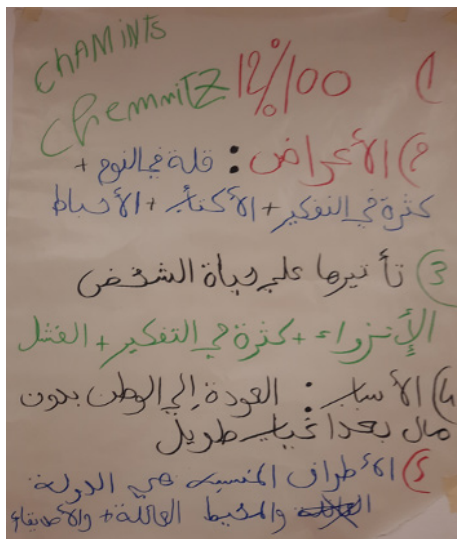 chAMiNTS
Chemnitz 12%100 (1
2) الأعراض : قلة في النوم +
كثرة في التفكير + الأكتأب + الأحباط
3) تأتيرها على حياة الشخص
الإنزواء + كثرة في التفكير + الفشل
4) الأسباب : العودة إلى الوطن بدون
مال بعدا غياب طويل
5) الأطراف المتسببه هي الدولة
والمحيط العائلة + والأصدقاء